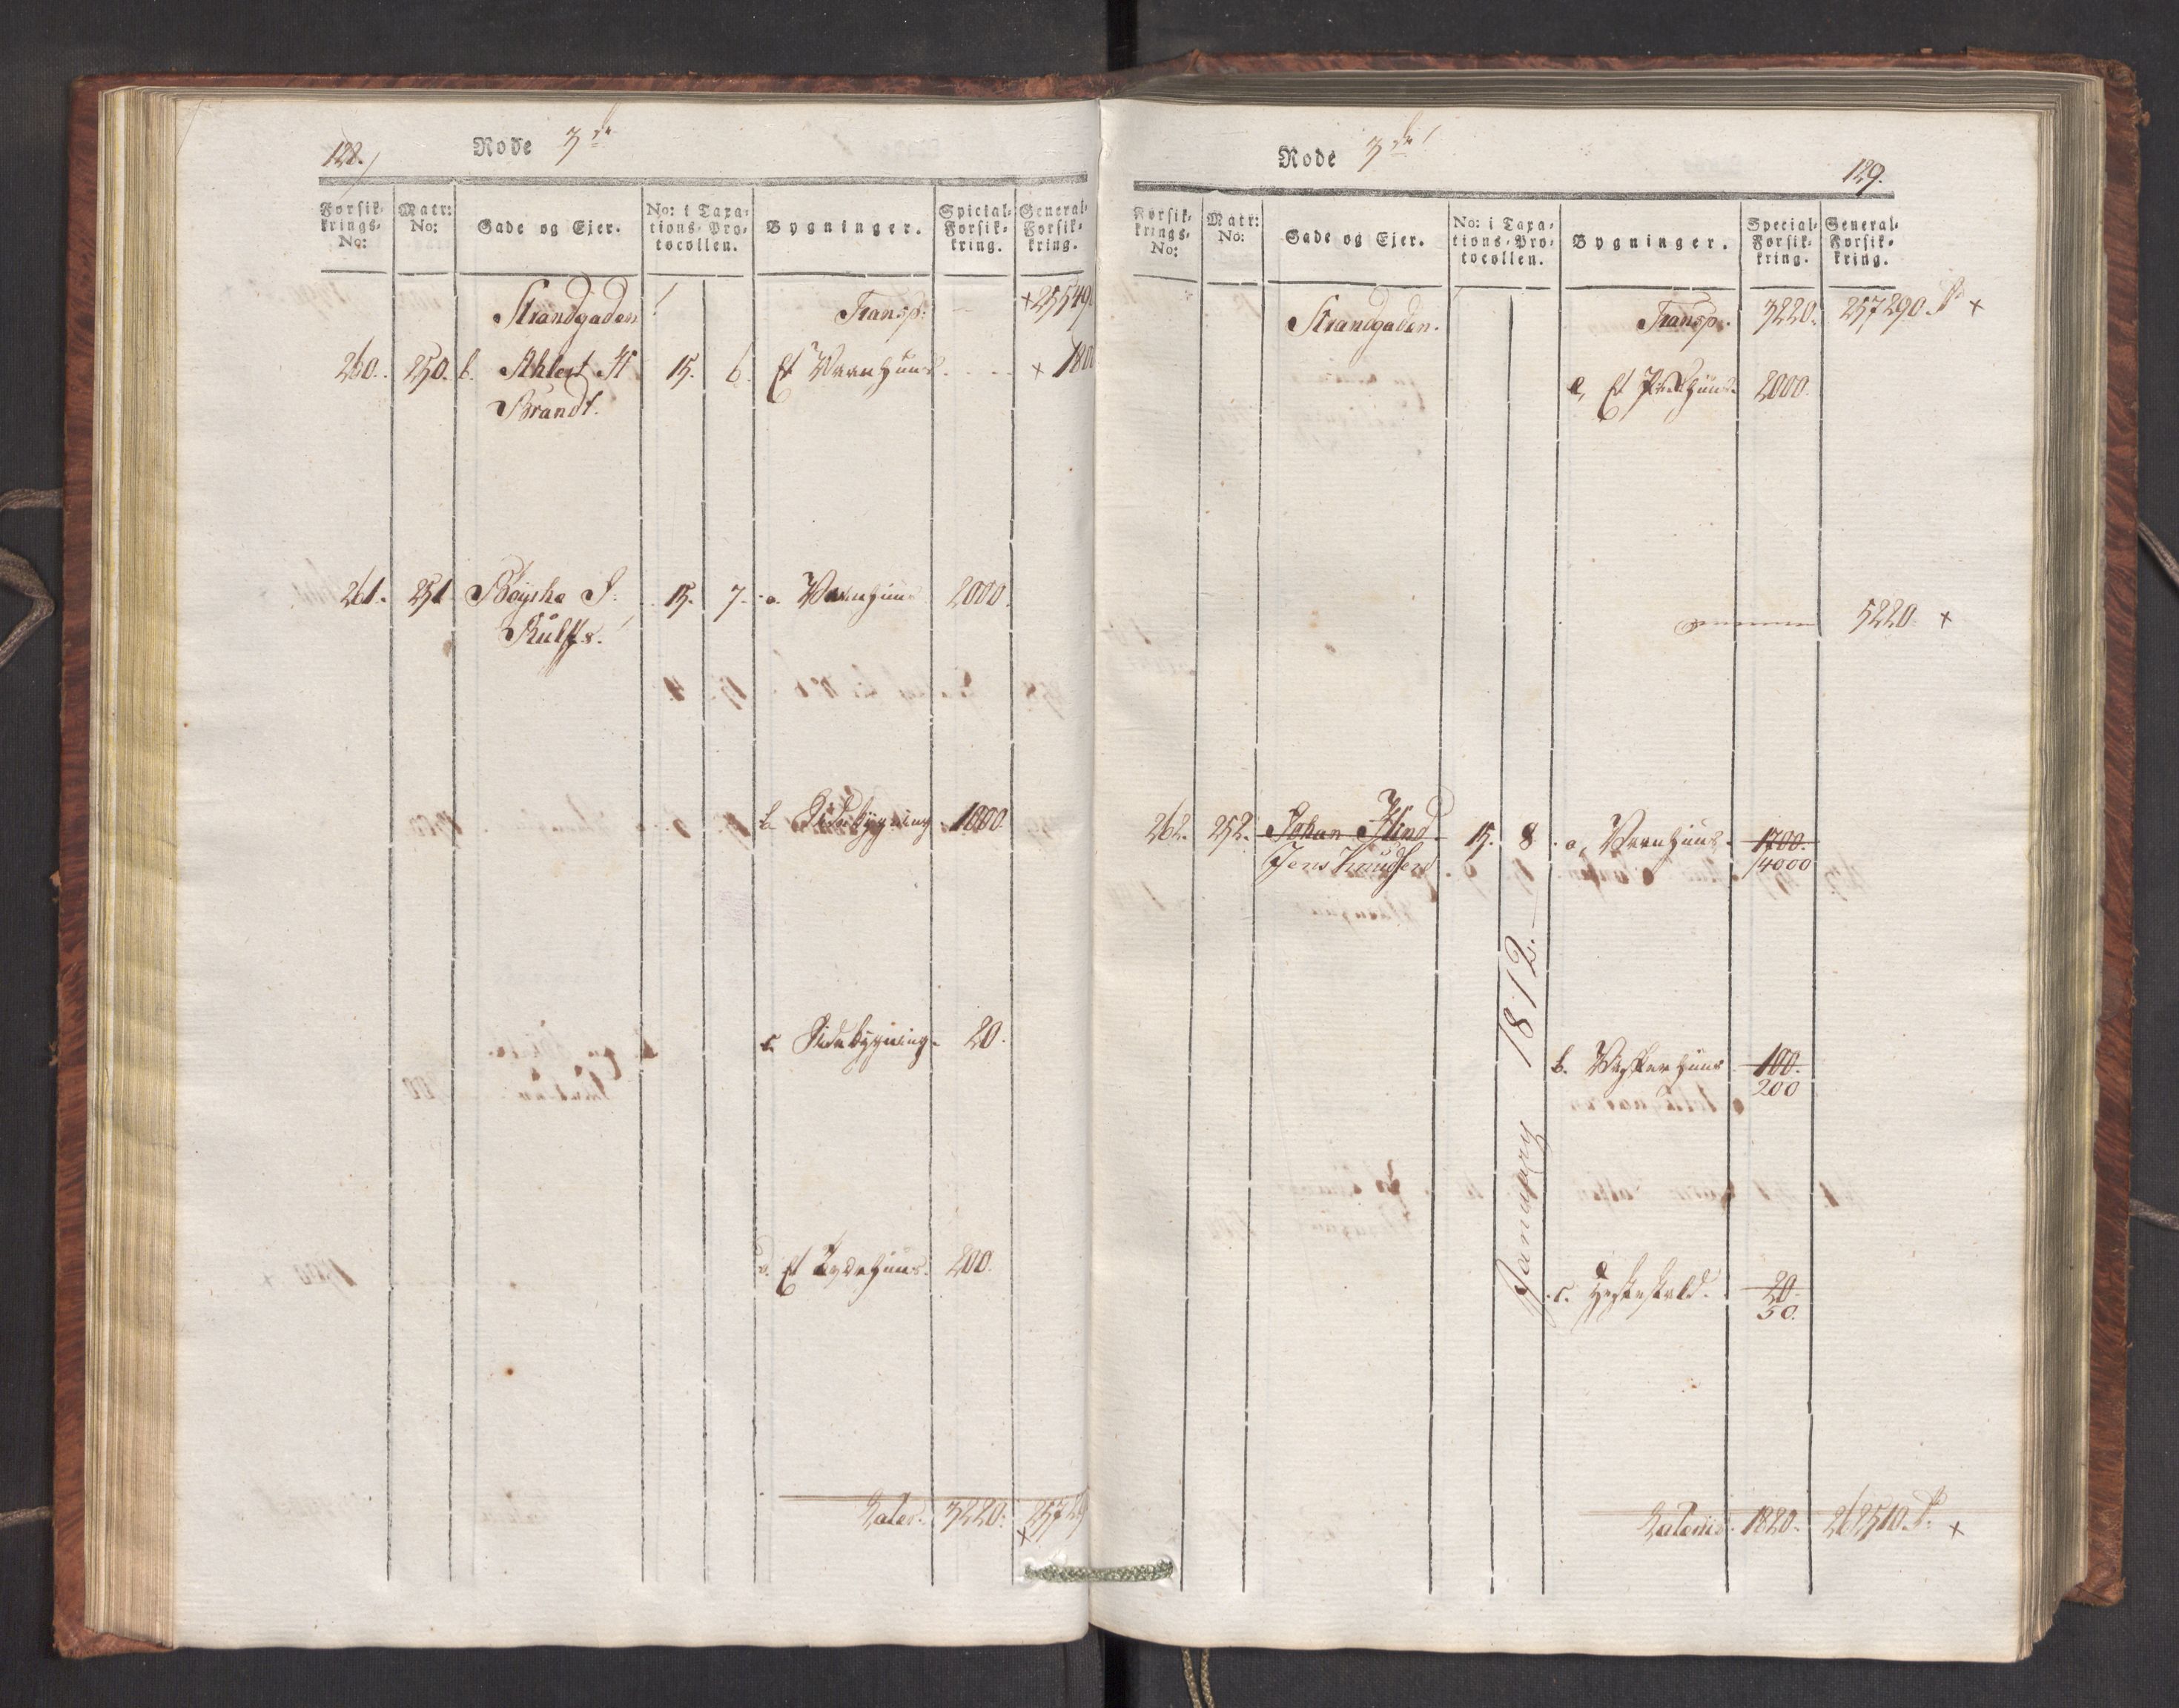 128.
Rode 3de
Forsik-krings-No: Matr: No: Gade og Ejer. No: i Taxa-tions-Pro-tocollen. Bygninger. Spicial-Forsik-kring. General-Forsik-kring.
Strandgaden Transp: +25549
260. 250. b. Ahlert H 15. 6. Et Vaanhuus. + 180
Brandt.
261. 251 Böyske P. 15. 7. a. Vaanhuus 2000.
Rulffs.
b. Sidebygning 1000.
c. Sidebygning 20.
d. Et huus. 200.
Lateris. 3220. +25729
Rode 3de
129.
Forsik-krings-No: Matr: No: Gade og Ejer. No: i Taxa-tions-Pro-tocollen. Bygninger. Special-Forsik-kring. General-Forsik-kring.
Strandgaden. Transp. 3220. 257290. +
e, Et huus 2000.
5220. +
262. 252. Johan Klind. 15. 8. a, Vaanhuus. 1700.
Jens Knudsen 4000
January 1812.
b. Vaskerhuus 100.
200
c. Hestestald. 20.
50.
Lateris. 1820. 262510. +